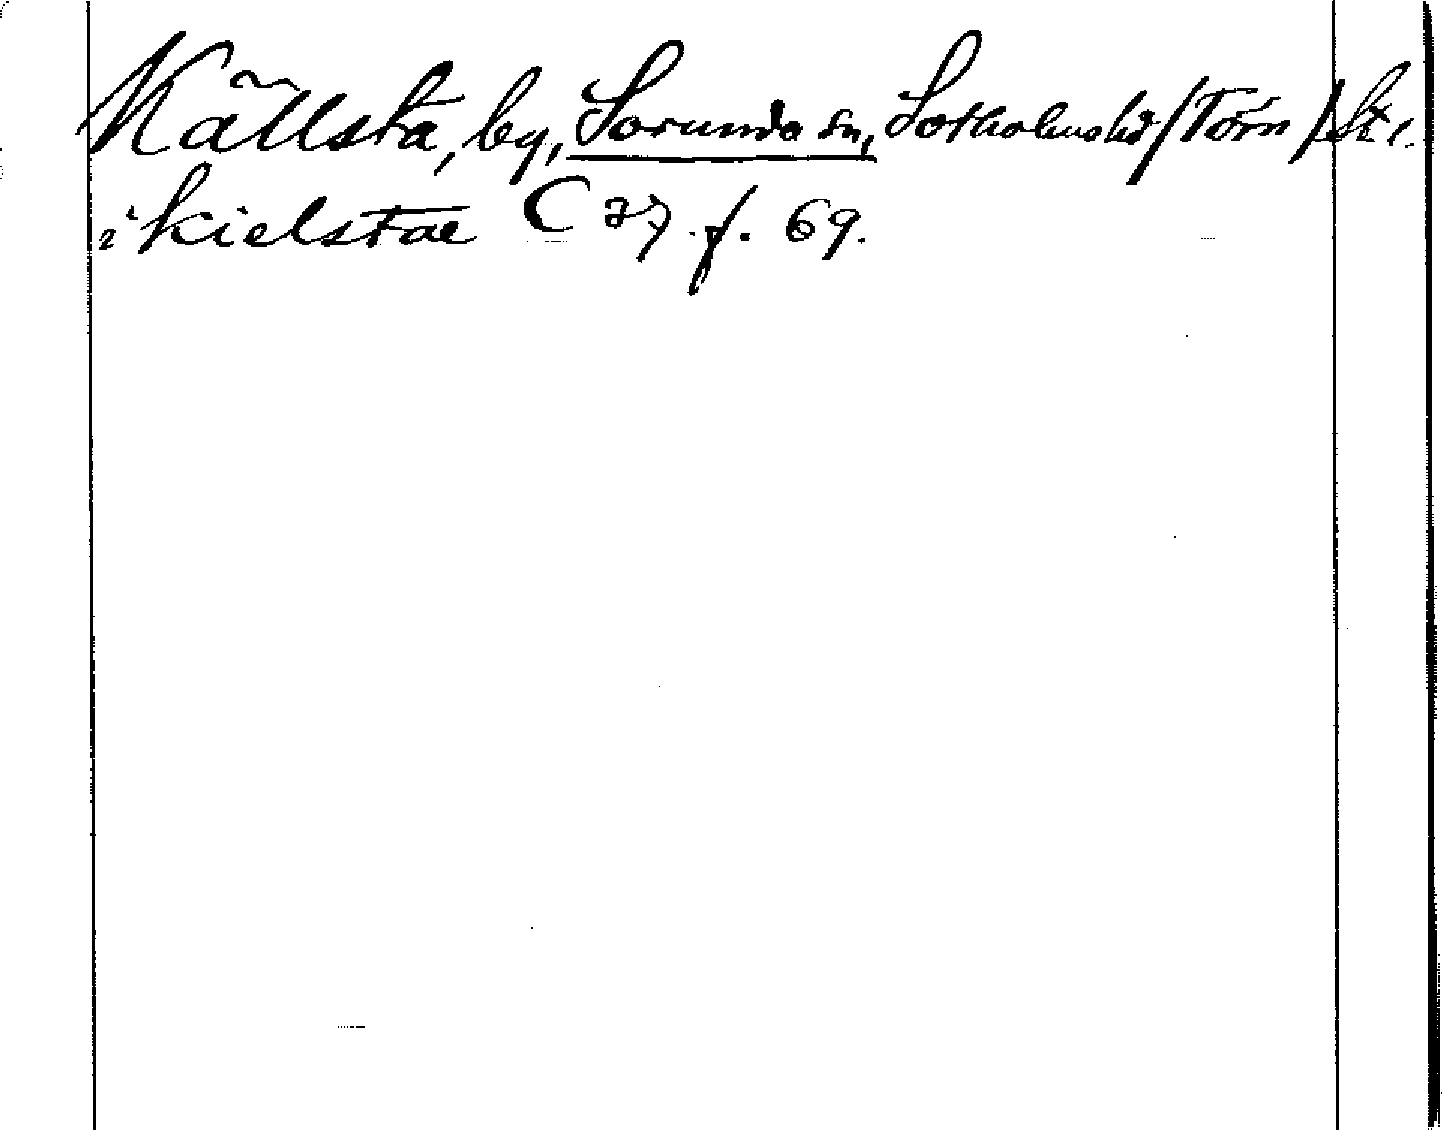 Källsta, by, Sorunda sn, Sotholms hd /Törn/ St. l.
i kielstae C 37 f. 69.